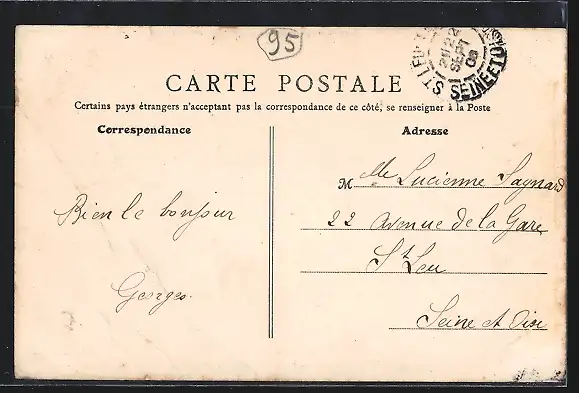 95
ST LEU
22
SEPT
08
SEINE ET OISE
CARTE POSTALE
Certains pays étrangers n'acceptant pas la correspondance de ce côté, se renseigner à la Poste
Correspondance
Adresse
Mlle Lucienne Sagnard
22 Avenue de la Gare
St Leu
Seine et Oise
Bien le bonjour
Georges.